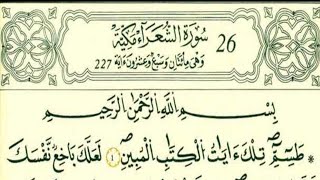 سُورَةُ الشُّعَرَاءِ مَكِّيَّة 26
وَهِيَ مِائَتَانِ وَسَبْعٌ وَعِشْرُونَ ءَايَة 227
بِسْمِ اللَّهِ الرَّحْمَٰنِ الرَّحِيمِ
طسٓمٓ ۝١ تِلْكَ ءَايَٰتُ الْكِتَٰبِ الْمُبِينِ لَعَلَّكَ بَٰخِعٌ نَّفْسَكَ